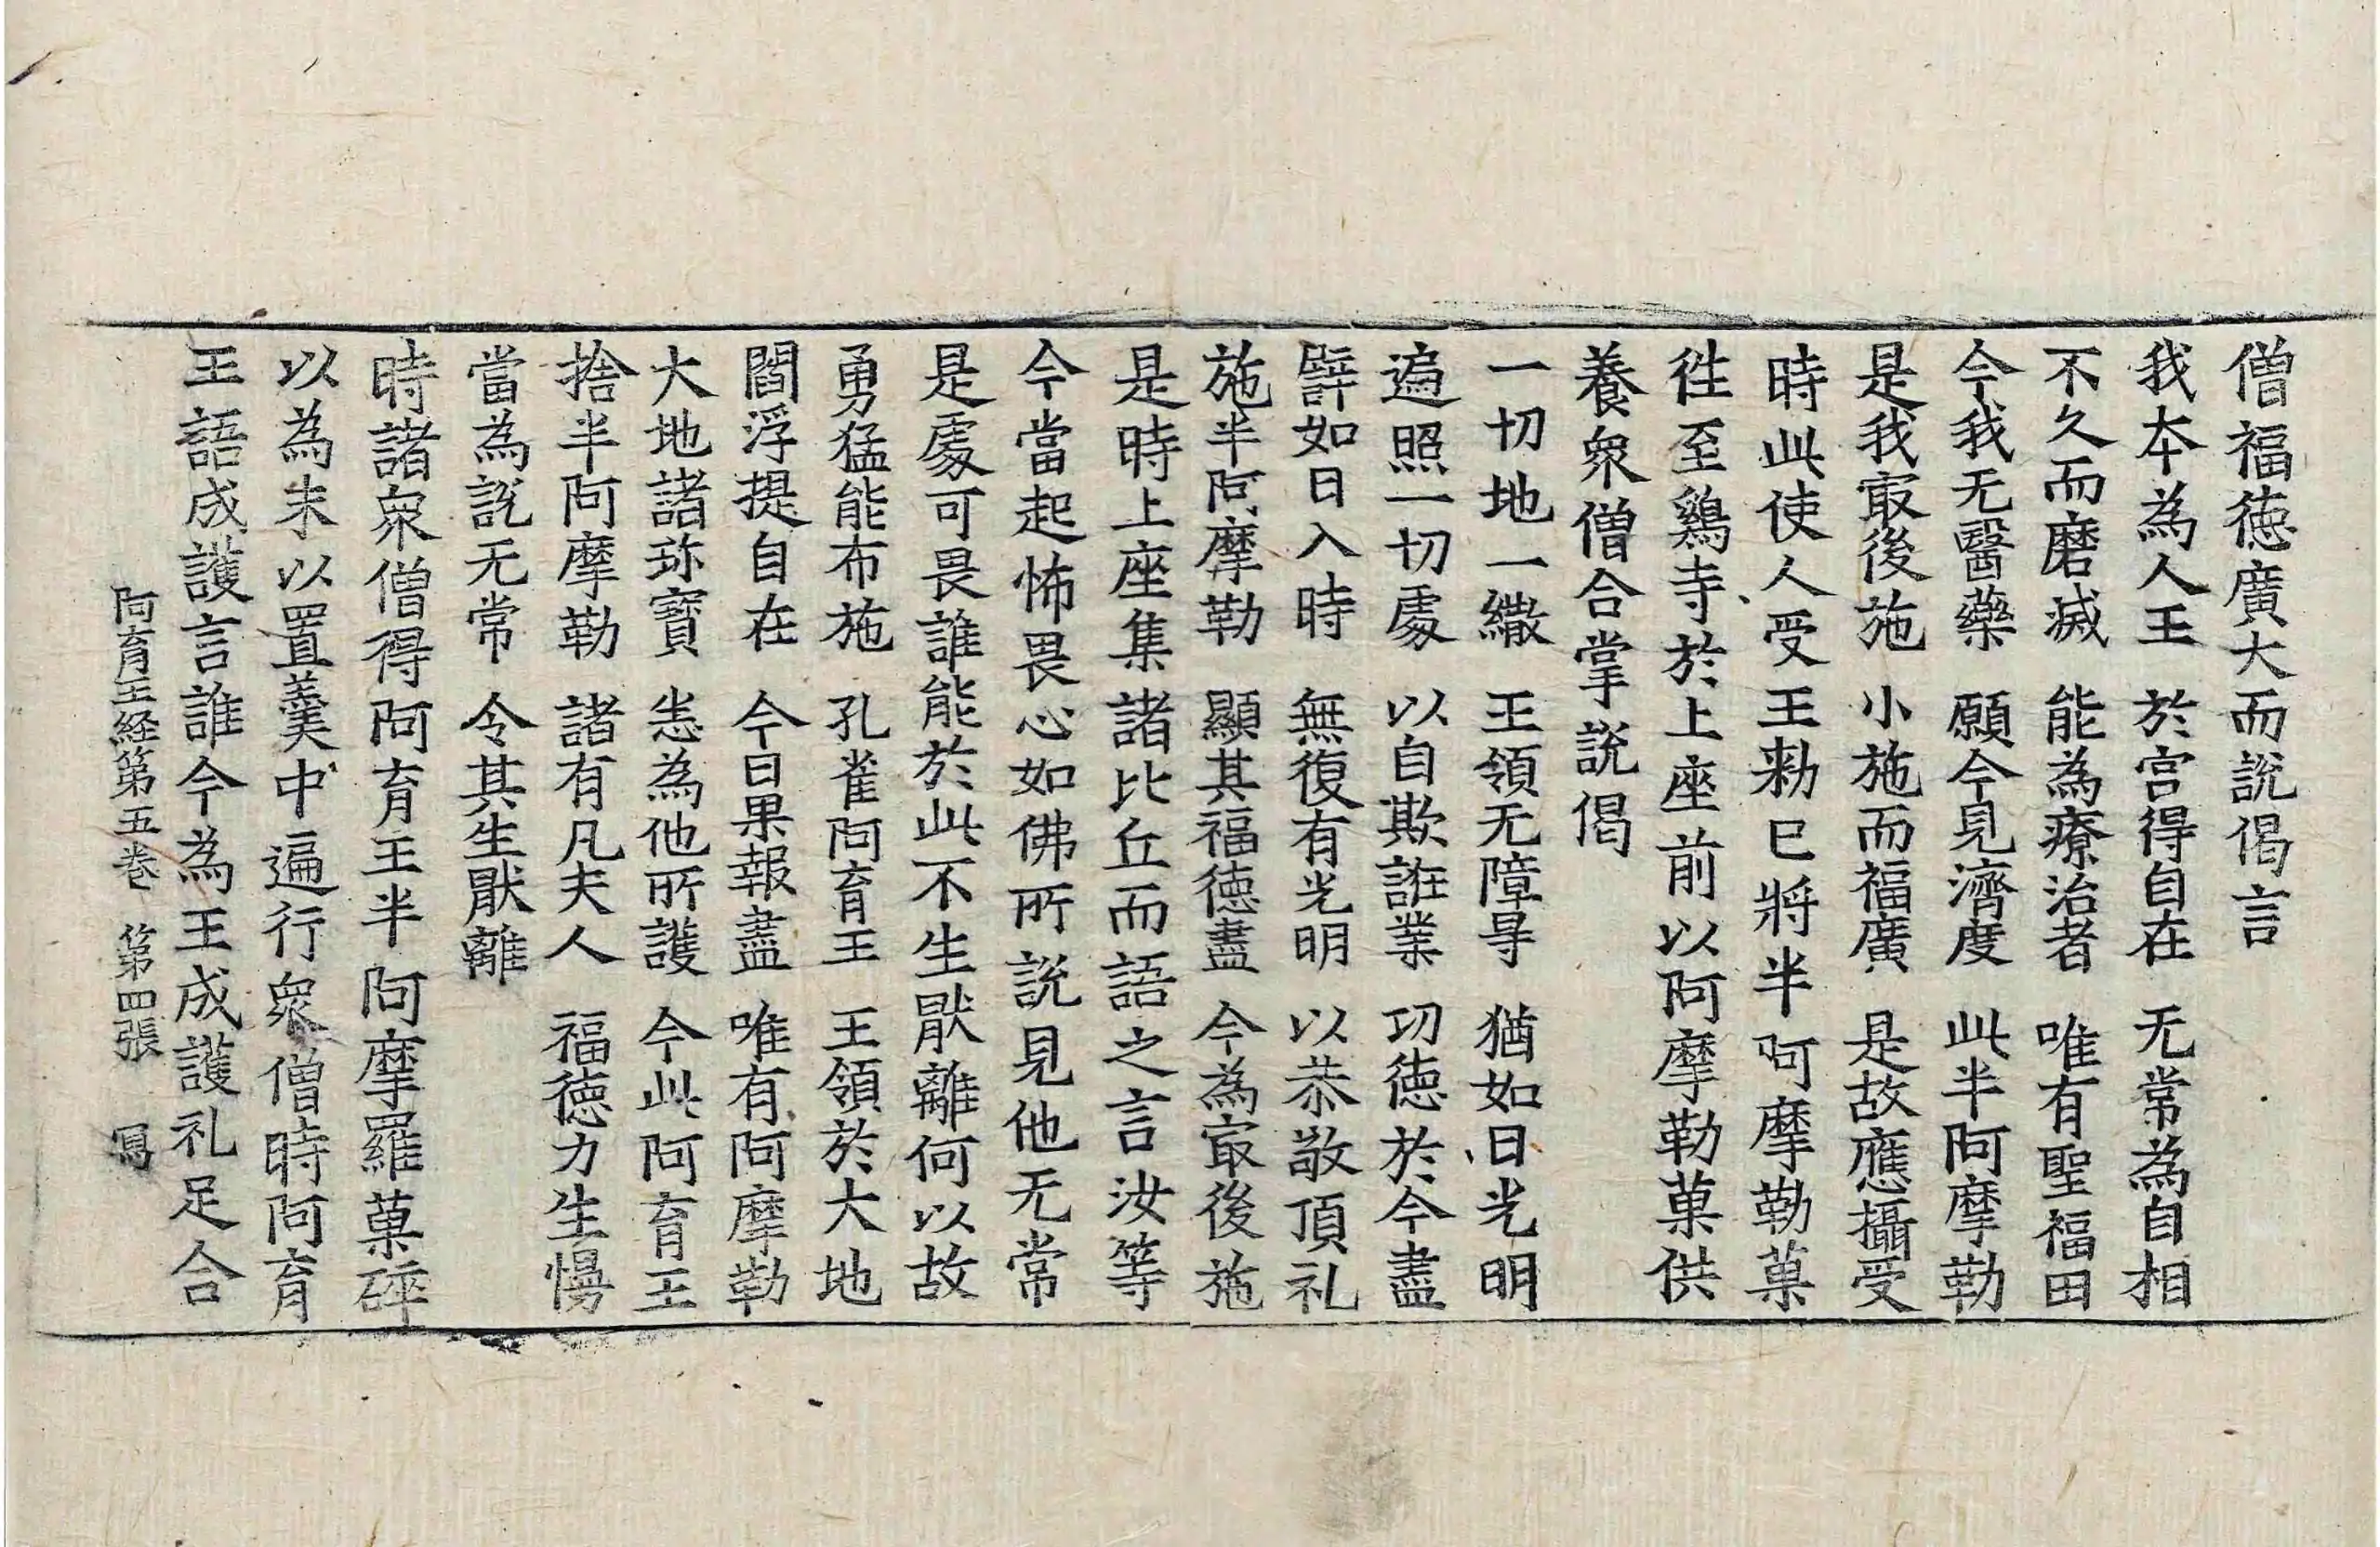 僧福徳廣大而說偈言
我本為人王　於宮得自在　无常為自相
不久而磨滅　能為療治者　唯有聖福田
今我无醫藥　願今見濟度　此半阿摩勒
是我㝡後施　小施而福廣　是故應攝受
時此使人受王勑已將半阿摩勒菓
徃至鷄寺於上座前以阿摩勒菓供
養衆僧合掌說偈
一切地一繖　王領无障㝵　猶如日光明
遍照一切處　以自欺誑業　功徳於今盡
譬如日入時　無復有光明　以恭敬頂礼
施半阿摩勒　顯其福徳盡　今為㝡後施
是時上座集諸比丘而語之言汝等
今當起怖畏心如佛所說見他无常
是處可畏誰能於此不生猒離何以故
勇猛能布施　孔雀阿育王　王領於大地
閻浮提自在　今日果報盡　唯有阿摩勒
大地諸珎寶　悉為他所護　今此阿育王
捨半阿摩勒　諸有凡夫人　福徳力生慢
當為說无常　令其生猒離
時諸衆僧得阿育王半阿摩羅菓碎
以為末以置羹中遍行衆僧時阿育
王語成護言誰今為王成護礼足合
阿育王経第五卷　第四張　冩